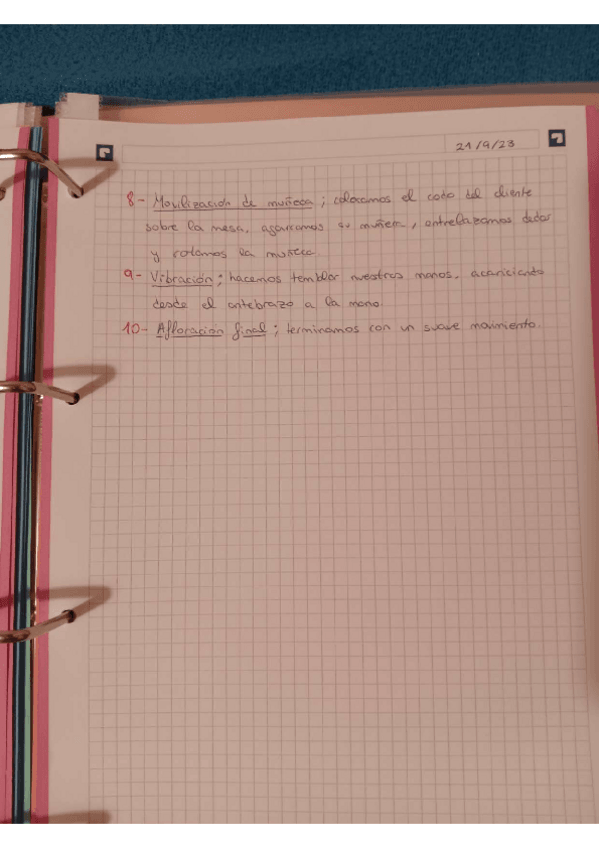 21/9/23
8- Movilización de muñeca; colocamos el codo del cliente
sobre la mesa, agarramos su muñeca, entrelazamos dedos
y rotamos la muñeca.
9- Vibración; hacemos temblor nuestras manos, acariciando
desde el antebrazo a la mano.
10- Afloración final; terminamos con un suave movimiento.